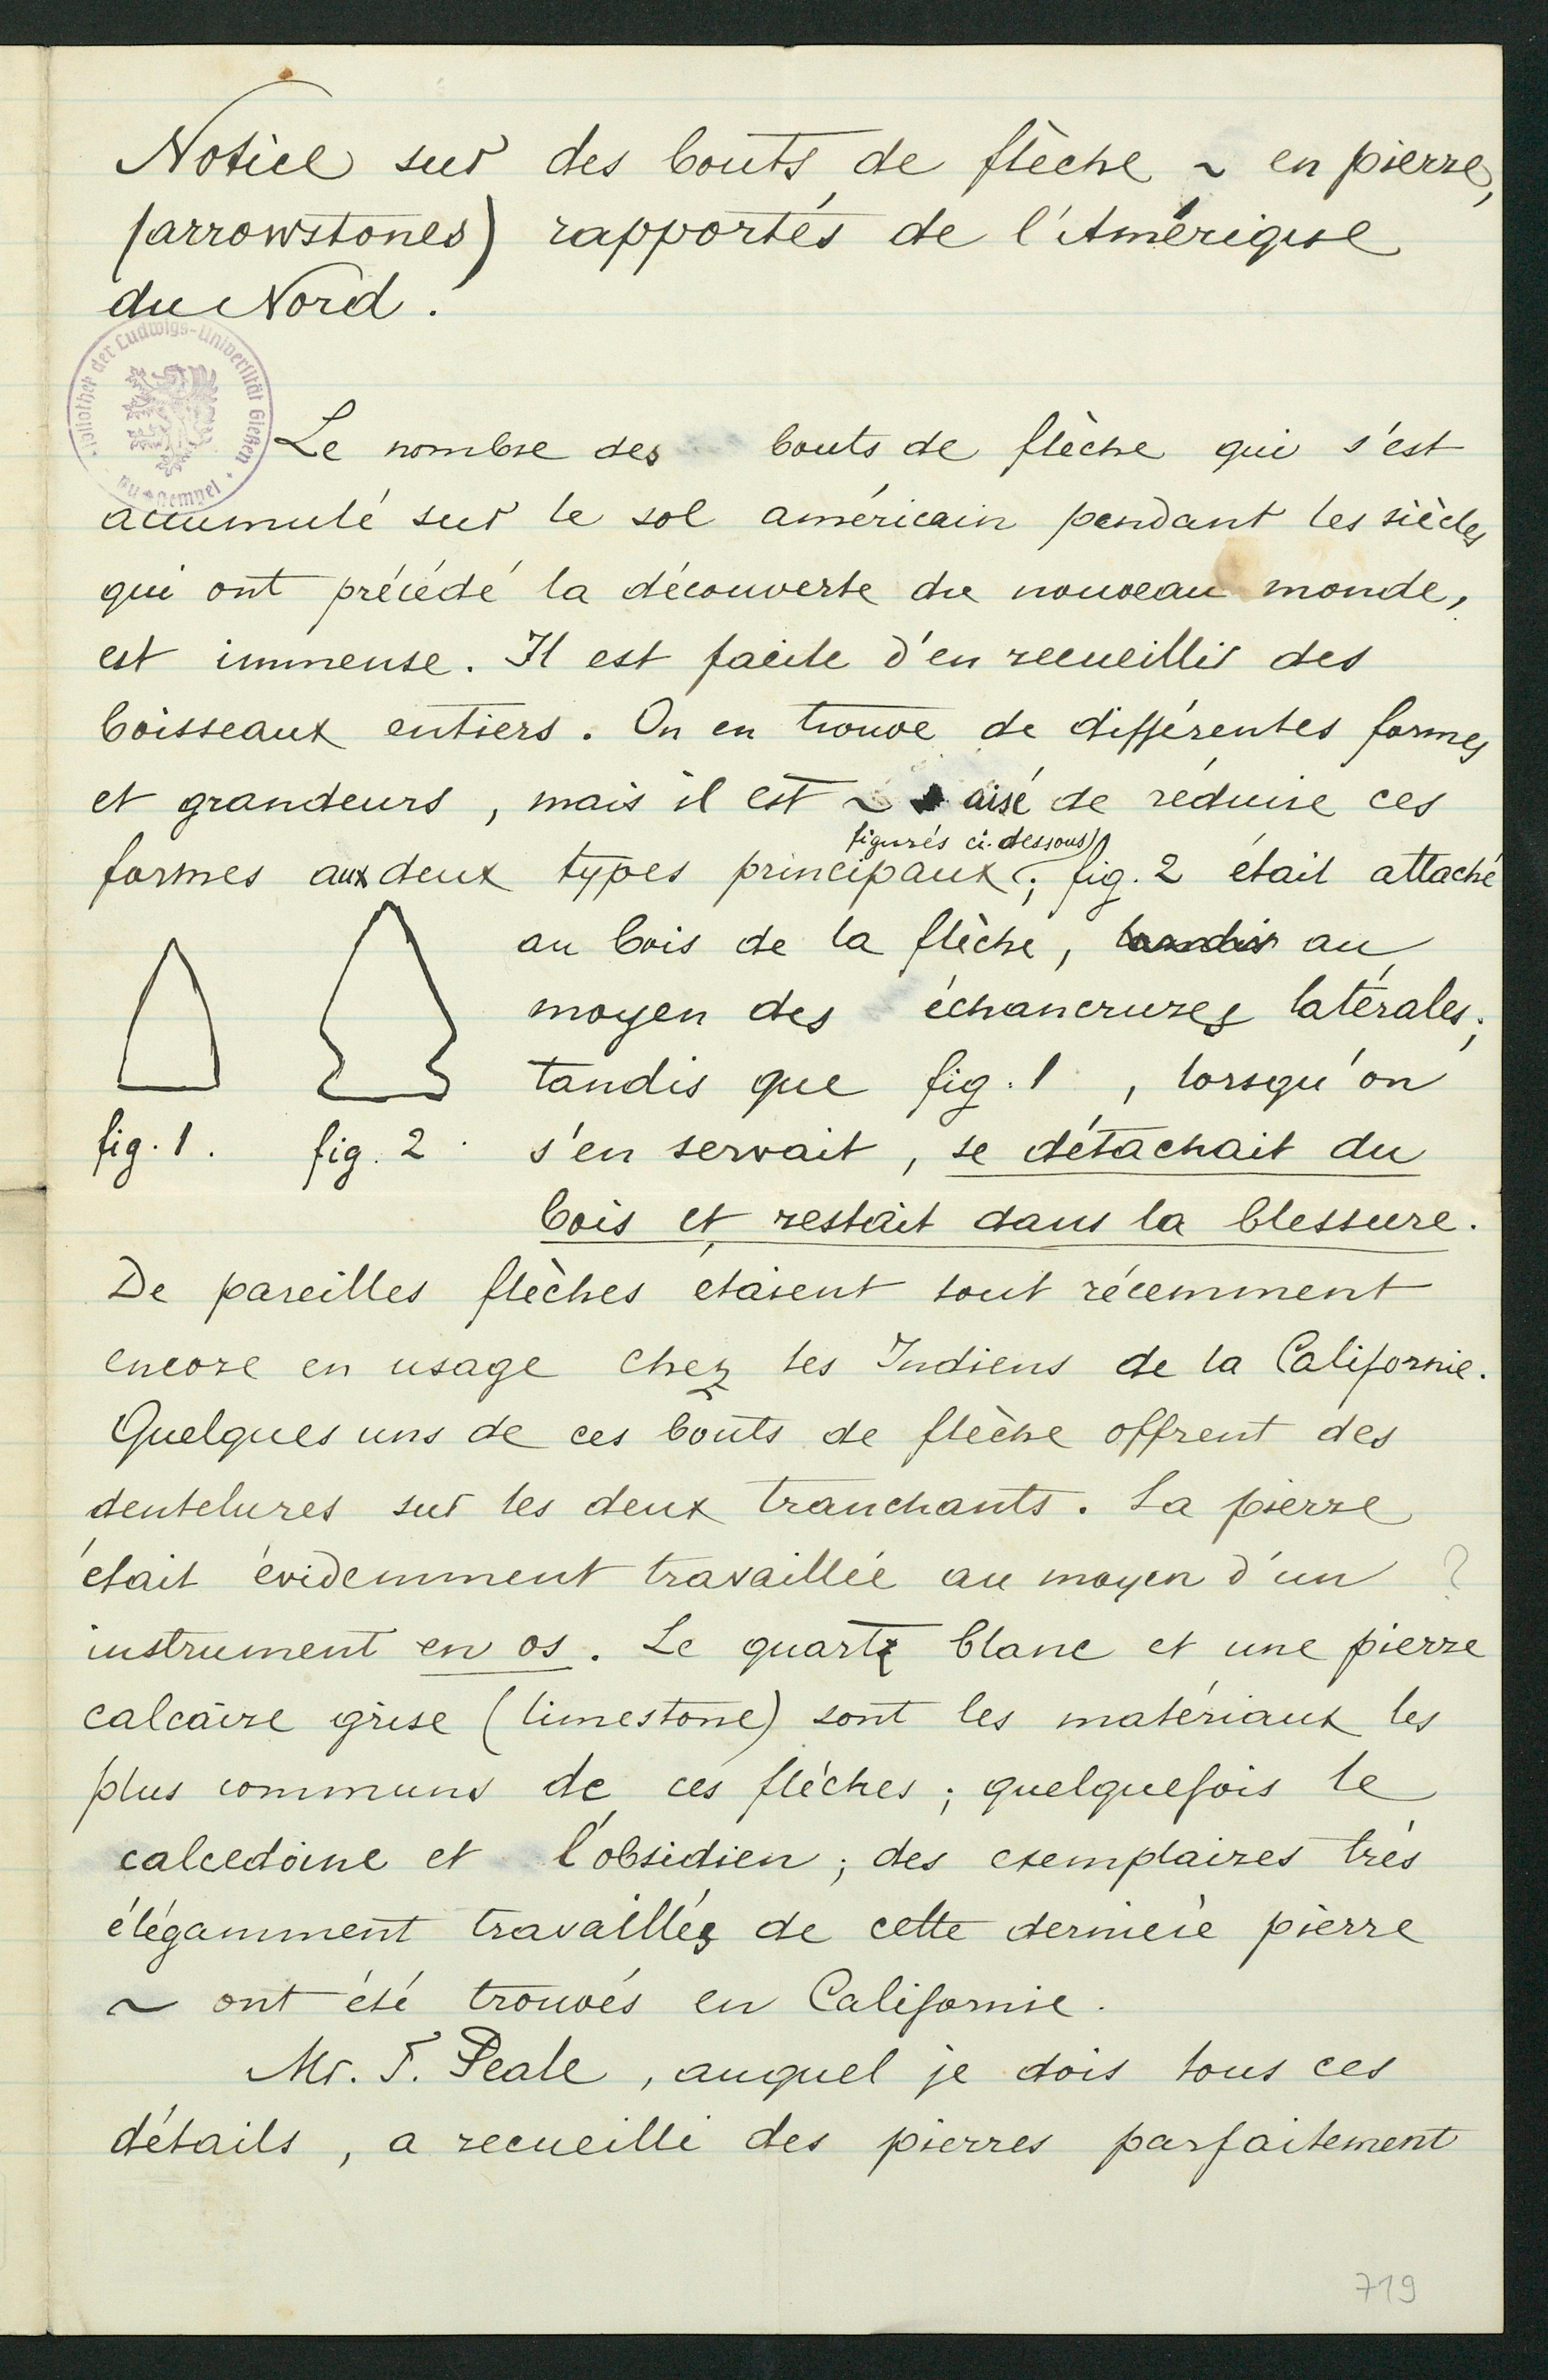 Notice sur des bouts de flèche ~ en pierre,
(arrowstones) rapportés de l'Amérique
du Nord.
Bibliothek der Ludwigs-Universität Gießen
Le nombre des bouts de flèche qui s'est
accumulé sur le sol américain pendant les siècles
qui ont précédé la découverte du nouveau monde,
est immense. Il est facile d'en recueillir des
boisseaux entiers. On en trouve de différentes formes
et grandeurs, mais il est ~ aisé de réduire ces
figurés ci-dessous)
formes aux deux types principaux (; fig. 2 était attaché
au bois de la flèche, tandis au
moyen des échancrures latérales;
tandis que fig. 1, lorsqu'on
fig. 1. fig. 2. s'en servait, se détachait du
bois et restait dans la blessure.
De pareilles flèches étaient tout récemment
encore en usage chez les Indiens de la Californie.
Quelques uns de ces bouts de flèche offrent des
dentelures sur les deux tranchants. La pierre
était évidemment travaillée au moyen d'un ?
instrument en os. Le quartz blanc et une pierre
calcaire grise (limestone) sont les matériaux les
plus communs de ces flèches; quelquefois le
calcedoine et l'obsidien; des exemplaires très
élégamment travaillés de cette dernière pierre
~ ont été trouvés en Californie.
Mr. T. Peale, auquel je dois tous ces
détails, a recueilli des pierres parfaitement
719